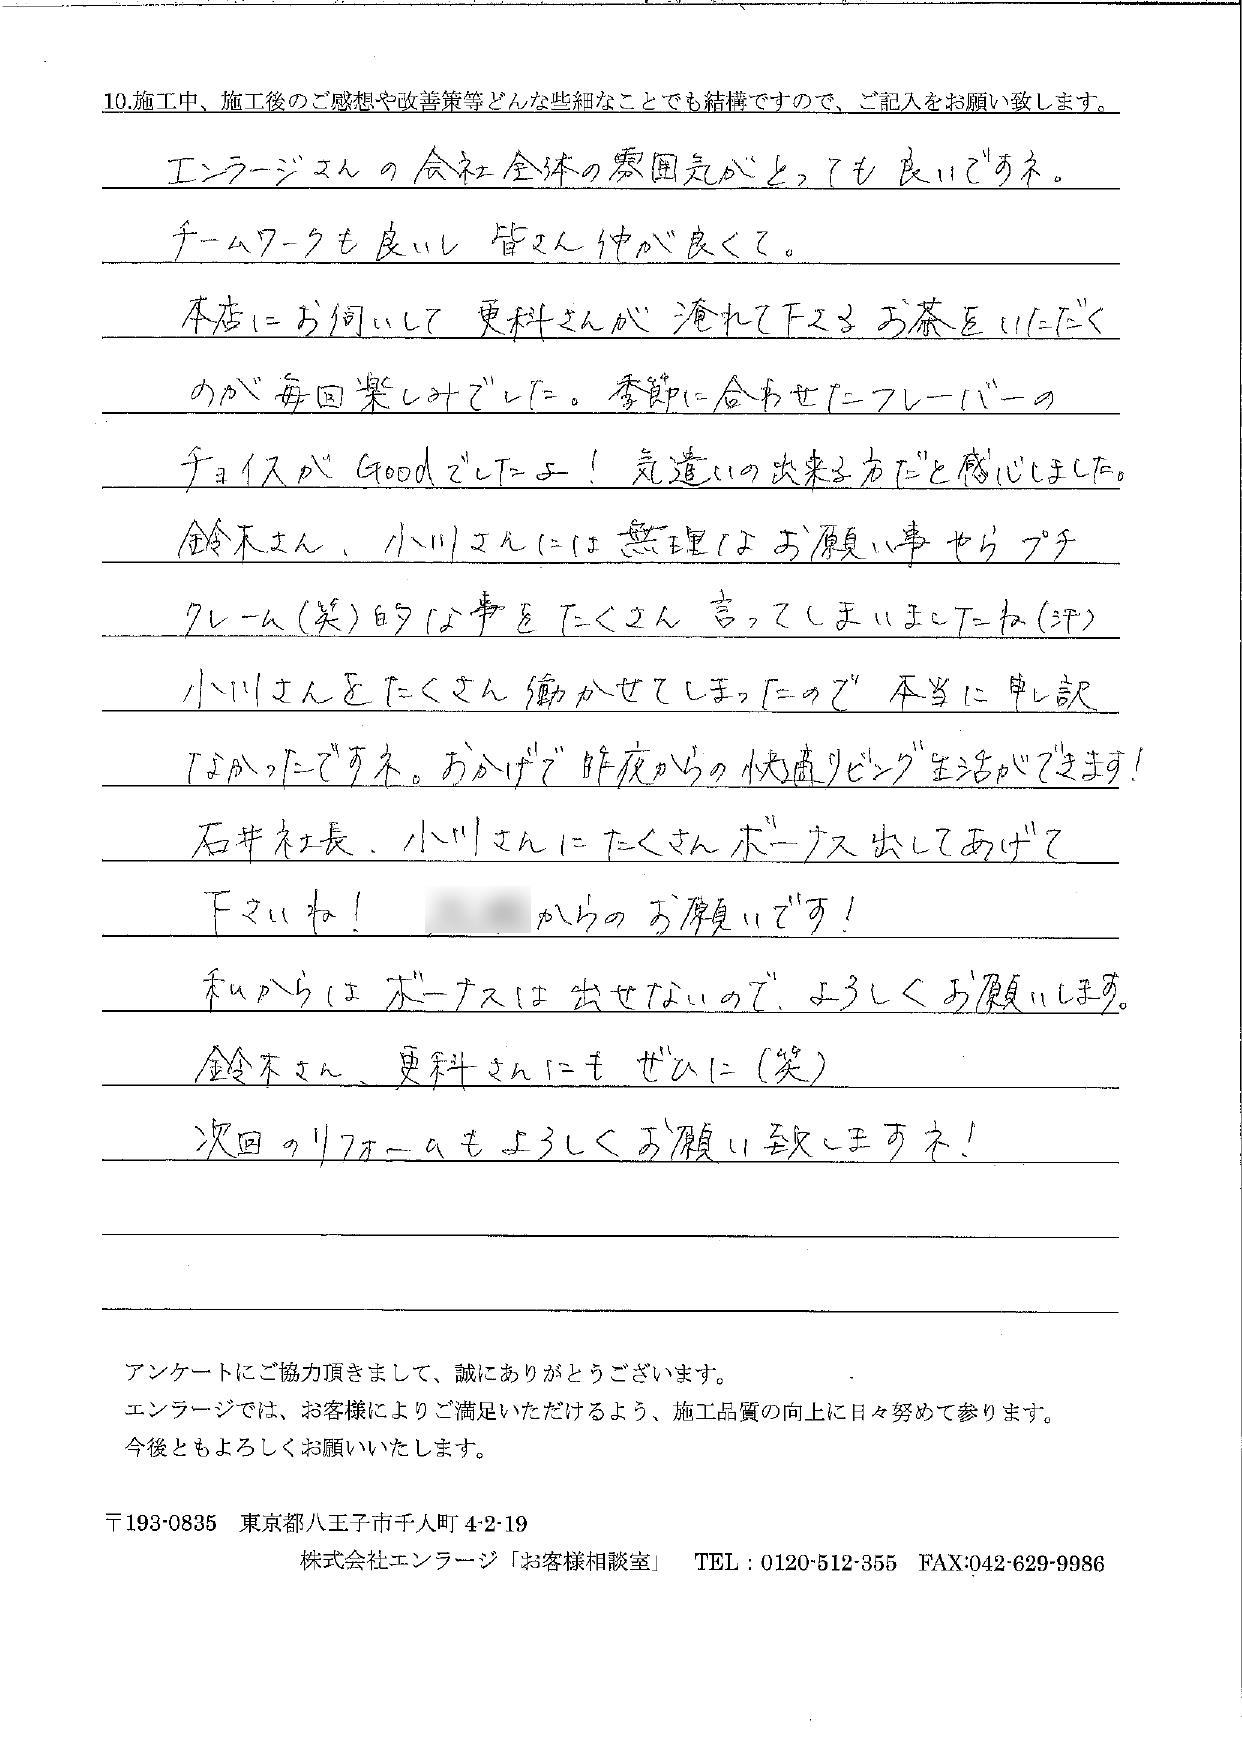 10.施工中、施工後のご感想や改善策等どんな些細なことでも結構ですので、ご記入をお願い致します。
エンラージさんの会社全体の雰囲気がとっても良いですネ。
チームワークも良いし 皆さん仲が良くて。
本店にお伺いして 更科さんが 淹れて下さる お茶をいただく
のが毎回楽しみでした。季節に合わせたフレーバーの
チョイスが Goodでしたよ! 気遣いの出来る方だと感心しました。
鈴木さん、小川さんには無理なお願い事やら プチ
クレーム(笑)的な事をたくさん 言ってしまいましたね(汗)
小川さんをたくさん働かせてしまったので 本当に申し訳
なかったですネ。おかげで昨夜からの快適リビング生活ができます!
石井社長、小川さんにたくさんボーナス出してあげて
下さいね! からのお願いです!
私からはボーナスは出せないので、よろしくお願いします。
鈴木さん、更科さんにも ぜひに(笑)
次回のリフォームもよろしくお願い致しますネ!
アンケートにご協力頂きまして、誠にありがとうございます。
エンラージでは、お客様によりご満足いただけるよう、施工品質の向上に日々努めて参ります。
今後ともよろしくお願いいたします。
〒193-0835 東京都八王子市千人町 4-2-19
株式会社エンラージ「お客様相談室」 TEL：0120-512-355 FAX:042-629-9986